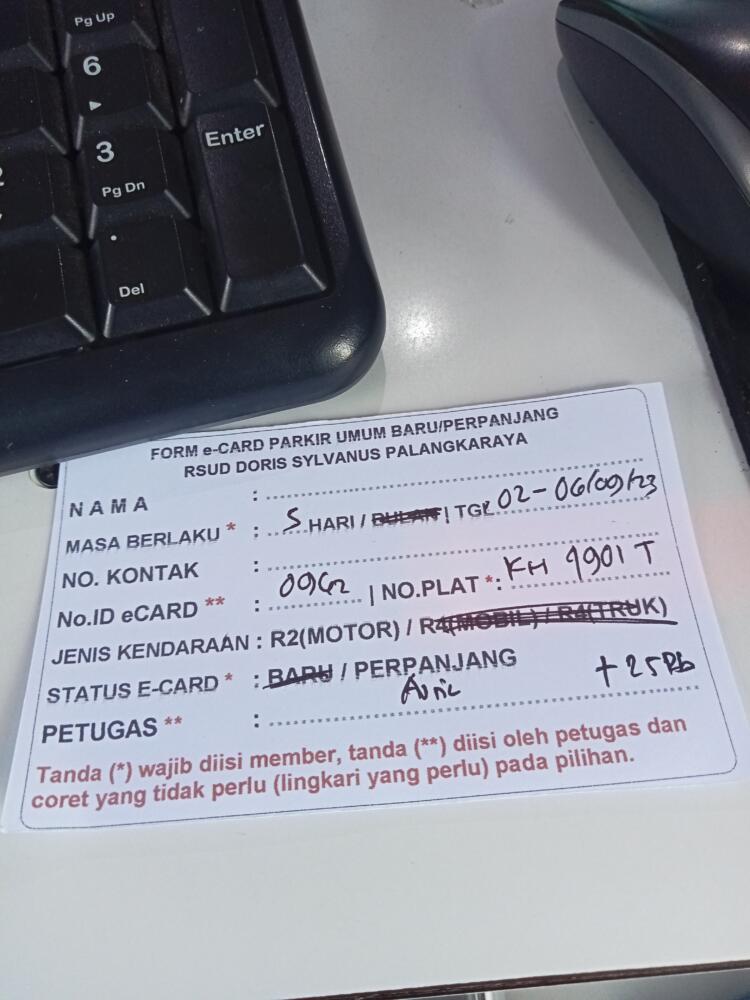 Pg Up
6
3
Pg Dn
Enter
.
Del
FORM e-CARD PARKIR UMUM BARU/PERPANJANG
RSUD DORIS SYLVANUS PALANGKARAYA
NAMA :
MASA BERLAKU * : 5 HARI / BULAN | TGL 02-06/09/23
NO. KONTAK :
No.ID eCARD ** : | NO.PLAT *: KH 9901 T
JENIS KENDARAAN : R2(MOTOR) / R4(MOBIL) / R4(TRUK)
STATUS E-CARD * : BARU / PERPANJANG
PETUGAS ** : + 25Rb
Tanda (*) wajib diisi member, tanda (**) diisi oleh petugas dan
coret yang tidak perlu (lingkari yang perlu) pada pilihan.